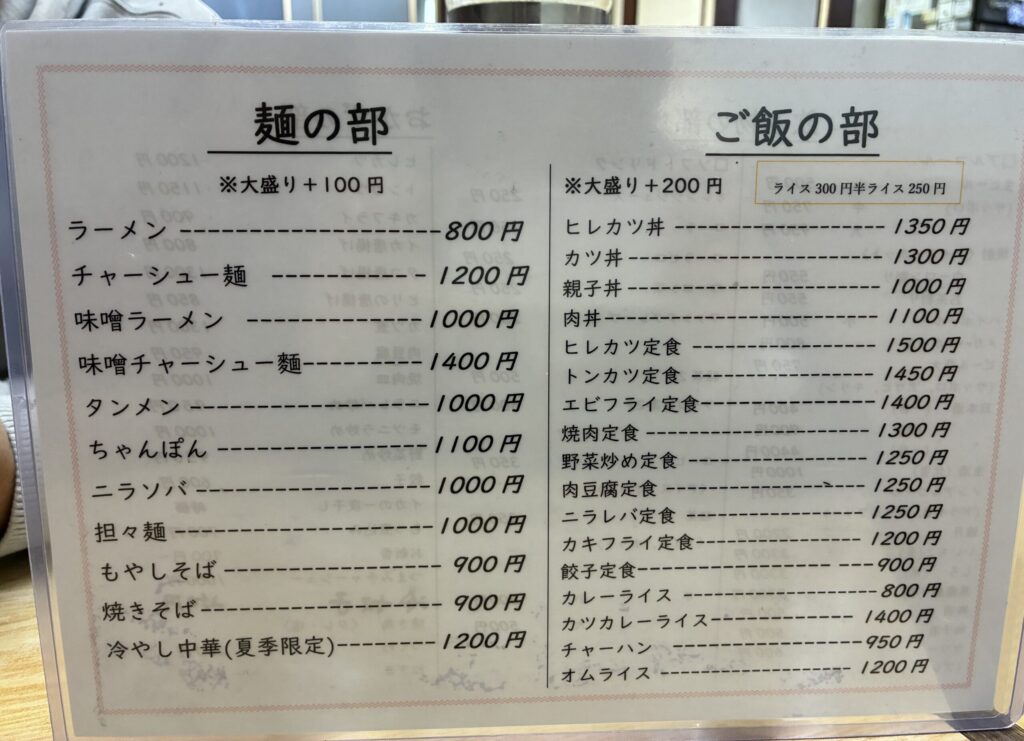 麺の部
※大盛り＋100円
ラーメン ----------------------800円
チャーシュー麺 ------------- 1200円
味噌ラーメン --------------1000円
味噌チャーシュー麺----------1400円
タンメン --------------------1000円
ちゃんぽん ------------------1100円
ニラソバ --------------------1000円
担々麺 ----------------------1000円
もやしそば ------------------ 900円
焼きそば-------------------- 900円
冷やし中華(夏季限定)---------1200円
ご飯の部
※大盛り＋200円
ライス300円半ライス250円
ヒレカツ丼 ------------------ 1350円
カツ丼---------------------- 1300円
親子丼---------------------- 1000円
肉丼------------------------ 1100円
ヒレカツ定食 ---------------- 1500円
トンカツ定食 ---------------- 1450円
エビフライ定食--------------- 1400円
焼肉定食 -------------------- 1300円
野菜炒め定食 ---------------- 1250円
肉豆腐定食 ------------------ 1250円
ニラレバ定食 ---------------- 1250円
カキフライ定食--------------- 1200円
餃子定食-------------------- 900円
カレーライス ---------------- 800円
カツカレーライス-------------1400円
チャーハン ----------------- 950円
オムライス ----------------- 1200円